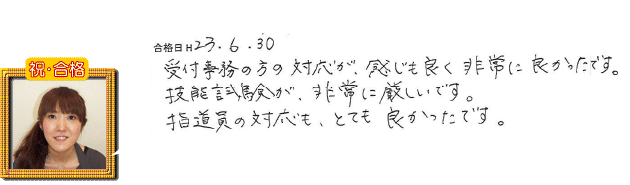 合格日 H23.6.30
祝・合格
受付事務の方の対応が、感じも良く非常に良かったです。
技能試験が、非常に厳しいです。
指導員の対応も、とても良かったです。